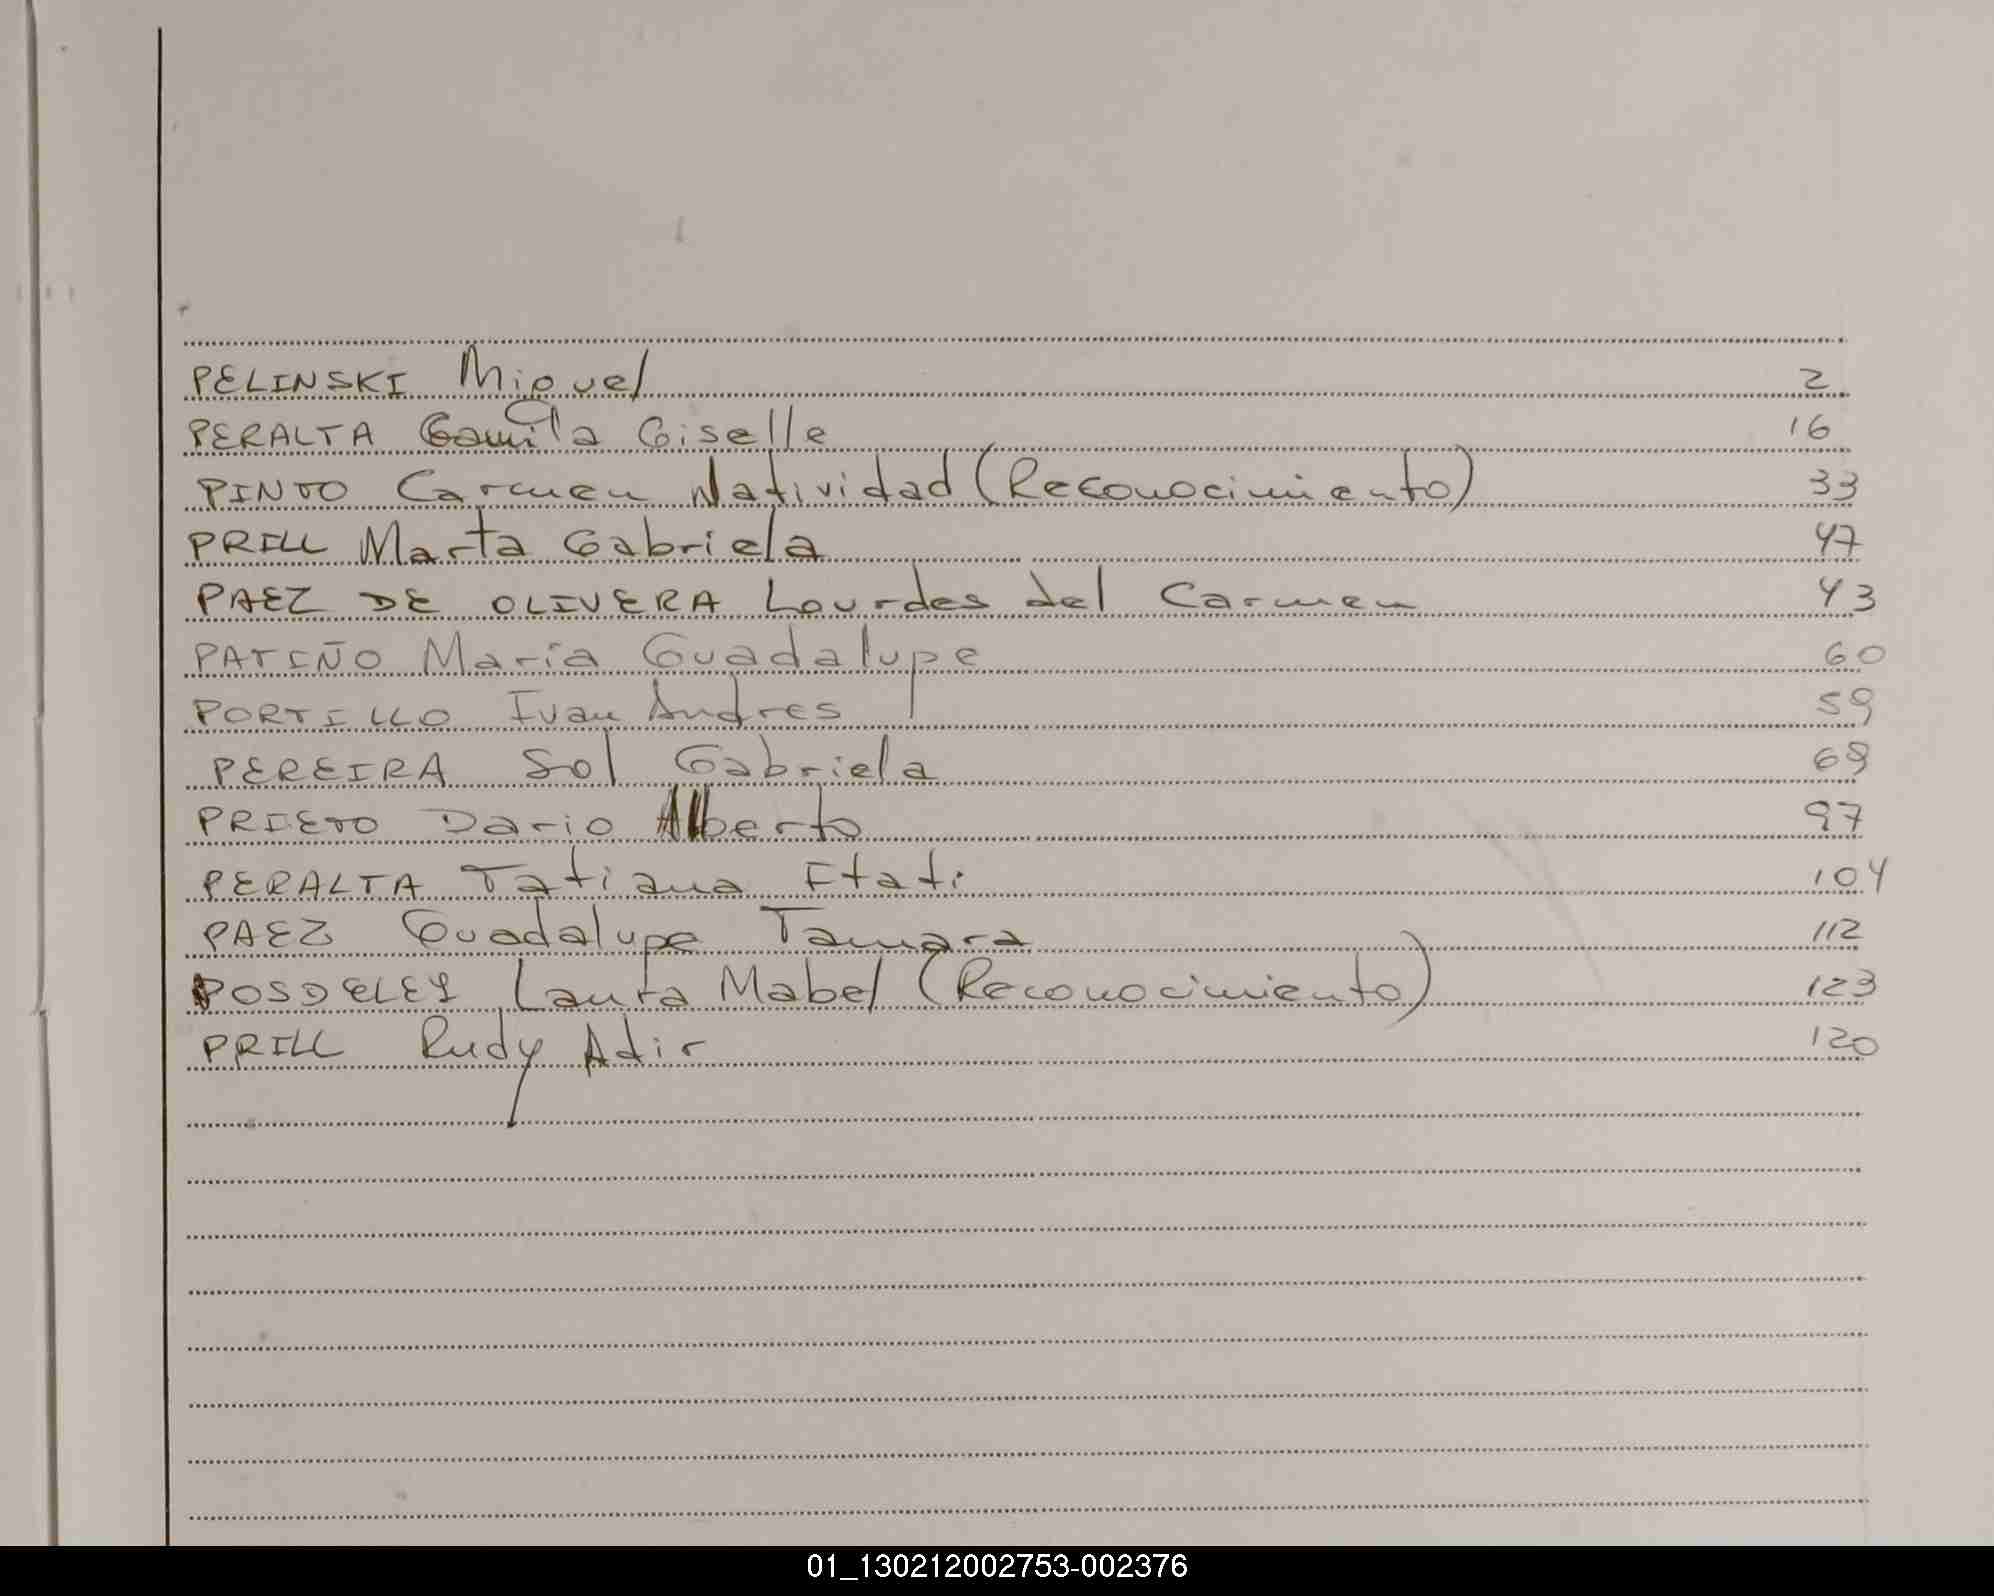 PELINSKI Miguel 2
PERALTA Camila Giselle 16
PINTO Carmen Natividad (Reconocimiento) 33
PRILL Marta Gabriela 47
PAEZ DE OLIVERA Lourdes del Carmen 43
PATIÑO María Guadalupe 60
PORTILLO Ivan Andres 59
PEREIRA Sol Gabriela 69
PRIETO Dario Alberto 97
PERALTA Tatiana Itati 104
PAEZ Guadalupe Tamara 112
POSDELEY Laura Mabel (Reconocimiento) 123
PRILL Rudy Adir 120
01_130212002753-002376